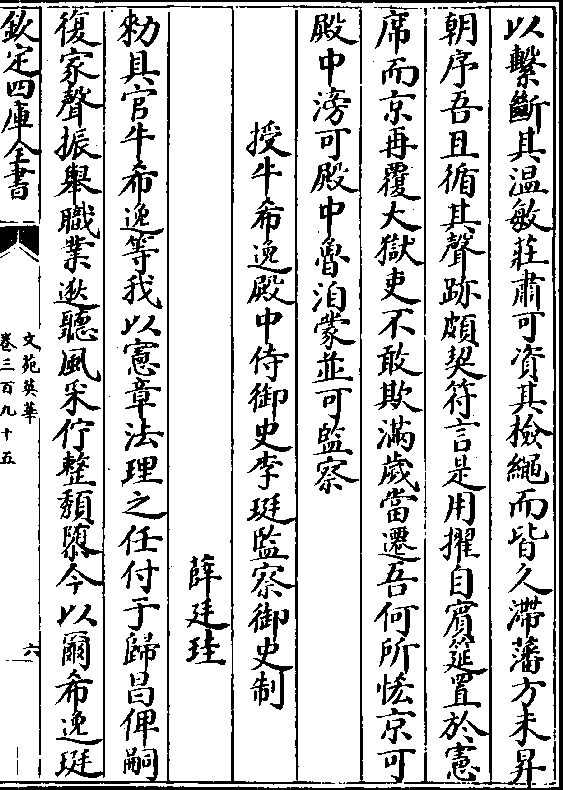 以繫斷其温敏莊肅可資其撿繩而皆久滯藩方未昇
朝序吾且循其聲跡頗契符言是用擢自賓筵置於憲
席而京再覆大獄吏不敢欺滿歲當遷吾何所恡京可
殿中滂可殿中魯洎蒙並可監察
授牛希逸殿中侍御史李珽監察御史制
薛廷珪
勑具官牛希逸等我以憲章法理之任付于歸昌俾嗣
復家聲振舉職業逖聽風采佇整頽隳今以爾希逸珽
欽定四庫全書
文苑英華
卷三百九十五
六